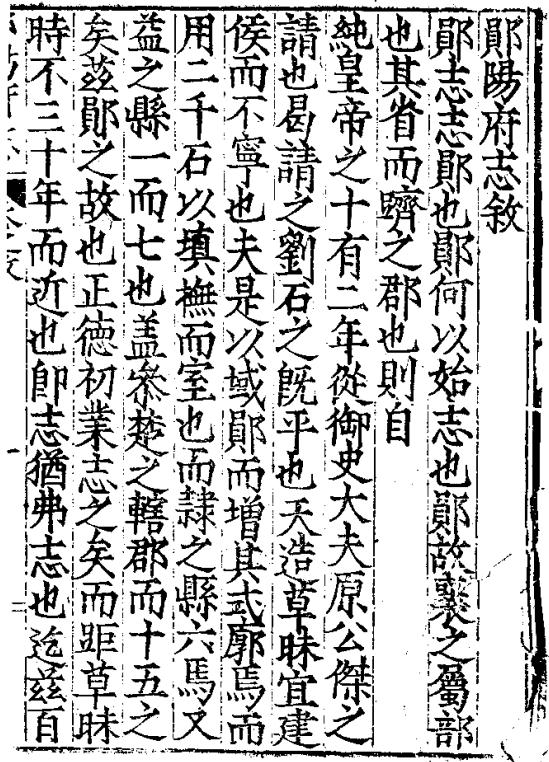 鄖陽府志敘
鄖志志鄖也鄖何以始志也鄖故襄之屬部
也其省而躋之郡也則自
純皇帝之十有二年從御史大夫原公傑之
請也曷請之劉石之旣平也天造草昧宜建
侯而不寧也夫是以域鄖而增其式廓焉而
用二千石以填撫而室也而隸之縣六焉又
益之縣一而七也盖叅楚之轄郡而十五之
矣茲鄖之故也正德初業志之矣而距草昧
時不三十年而近也卽志猶弗志也迄茲百